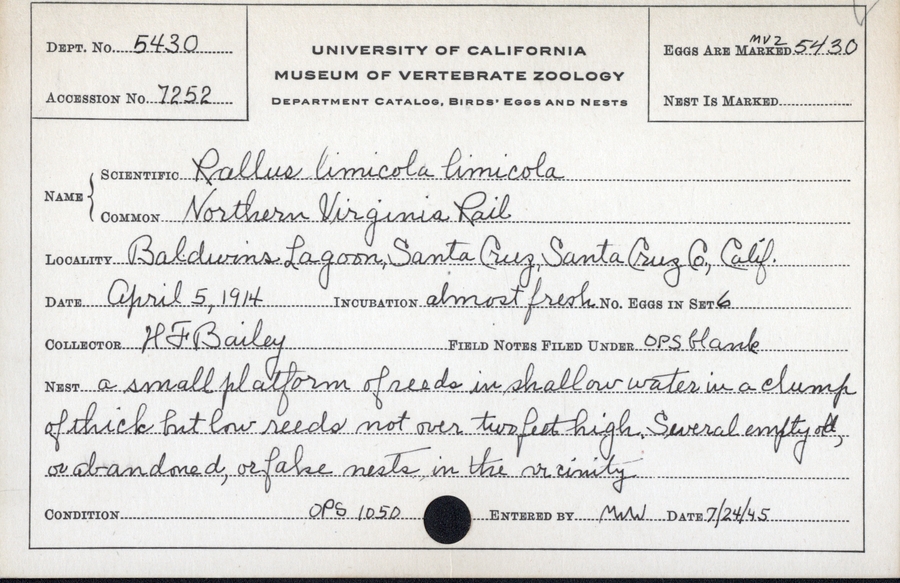 DEPT. No. 5430
ACCESSION No. 7252
UNIVERSITY OF CALIFORNIA
MUSEUM OF VERTEBRATE ZOOLOGY
DEPARTMENT CATALOG, BIRDS' EGGS AND NESTS
EGGS ARE MARKED MVZ 5430
NEST IS MARKED
NAME
SCIENTIFIC Rallus limicola limicola
COMMON Northern Virginia Rail
LOCALITY Baldwins Lagoon, Santa Cruz, Santa Cruz Co, Calif.
DATE April 5, 1914 INCUBATION almost fresh No. EGGS IN SET 6
COLLECTOR H F Bailey FIELD NOTES FILED UNDER OPS blank
NEST a small platform of reeds in shallow water in a clump
of thick but low reeds not over two feet high. Several empty old,
or abandoned, or false nests in the vicinity
CONDITION OPS 1050 ENTERED BY MWW DATE 7/24/45